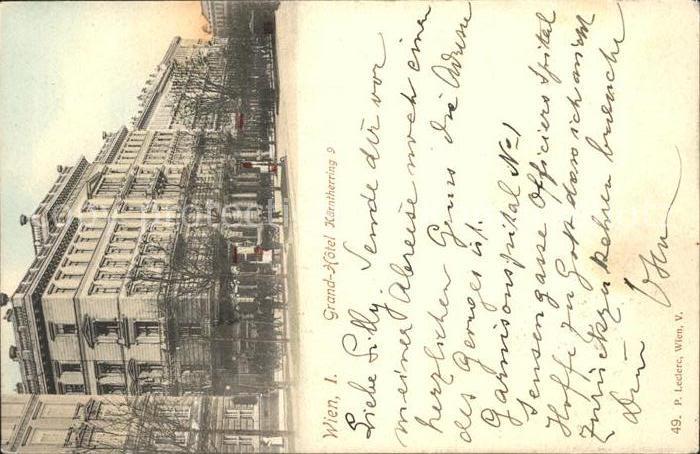 Wien, I. Grand-Hôtel Kärntherring 9
Liebe Lilly Sende dir vor
meiner Abreise noch einen
herzlichen Gruss die Adresse
des Georges ist.
Garnisonspital No 1
Sensengasse Officiers Spital
Hoffe zu Gott dass ich nicht
zurückzukehren brauche
Dein
49. P. Leclerc, Wien, V.